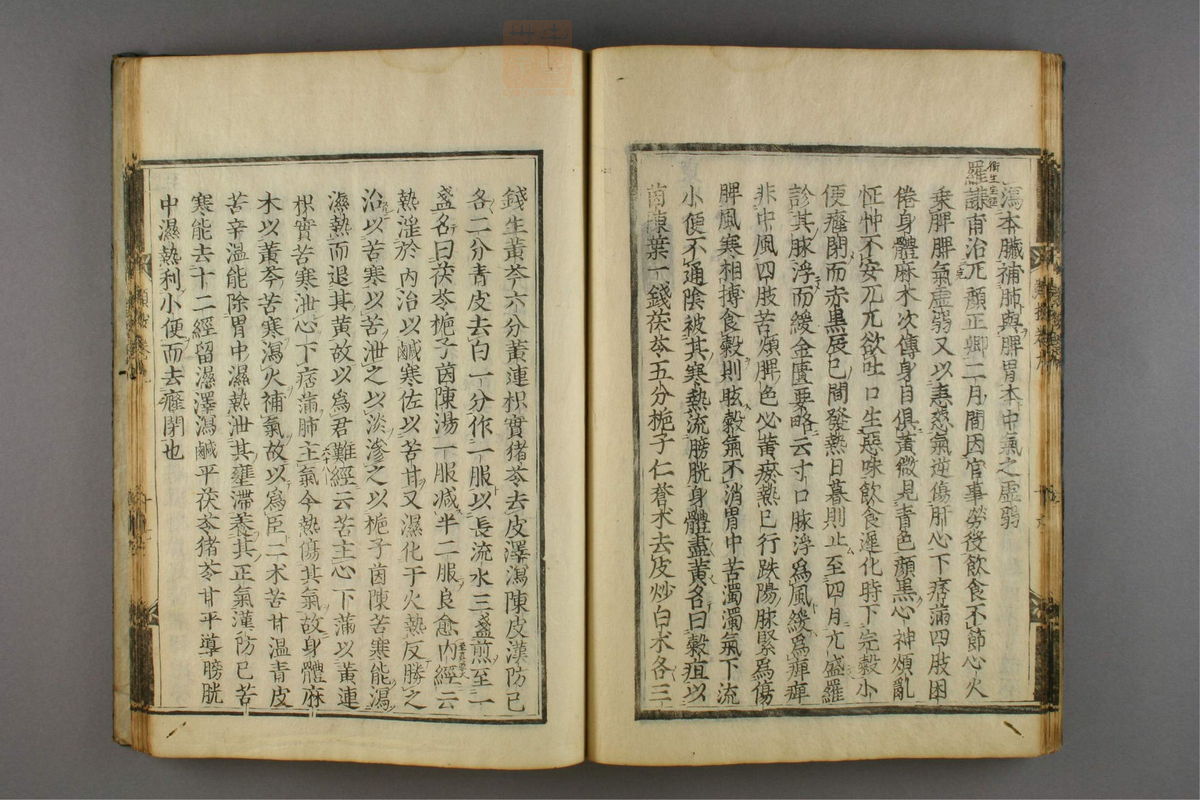 瀉本臟補肺與脾胃本中氣之虛弱
衛生宝鑑
羅謙甫治兀顏正卿二月間因官事勞役飲食不節心火
乗脾脾氣虛弱又以恚怒氣逆傷肝心下痞滿四肢困
倦身體麻木次傳身目俱黃微見青色顏黑心神煩亂
怔忡不安兀兀欲吐口生惡味飲食遲化時下完穀小
便癃閉而赤黒辰巳間發熱日暮則止至四月尤盛羅
診其脉浮而緩金匱要略云寸口脉浮爲風緩爲痺痺
非中風四肢苦煩脾色必黃瘀熱已行趺陽脉緊爲傷
脾風寒相搏食穀則眩穀氣不消胃中苦濁濁氣下流
小便不通陰被其寒熱流膀胱身體盡黃名曰穀疸以
茵陳葉一錢茯苓五分梔子仁蒼朮去皮炒白朮各三
錢生黃芩六分黃連枳實猪苓去皮澤瀉陳皮漢防已
各二分青皮去白一分作一服以長流水三盞煎至一
盞名曰茯苓梔子茵陳湯一服減半二服良愈內經云
熱淫於內治以鹹寒佐以苦甘又濕化于火熱反勝之
治以苦寒以苦泄之以淡滲之以梔子茵陳苦寒能瀉
濕熱而退其黃故以爲君難經云苦主心下滿以黃連
枳實苦寒泄心下痞滿肺主氣今熱傷其氣故身體麻
木以黃芩苦寒瀉火補氣故以爲臣二朮苦甘溫青皮
苦辛溫能除胃中濕熱泄其壅滯養其正氣漢防已苦
寒能去十二經留濕澤瀉鹹平茯苓猪苓甘平導膀胱
中濕熱利小便而去癃閉也